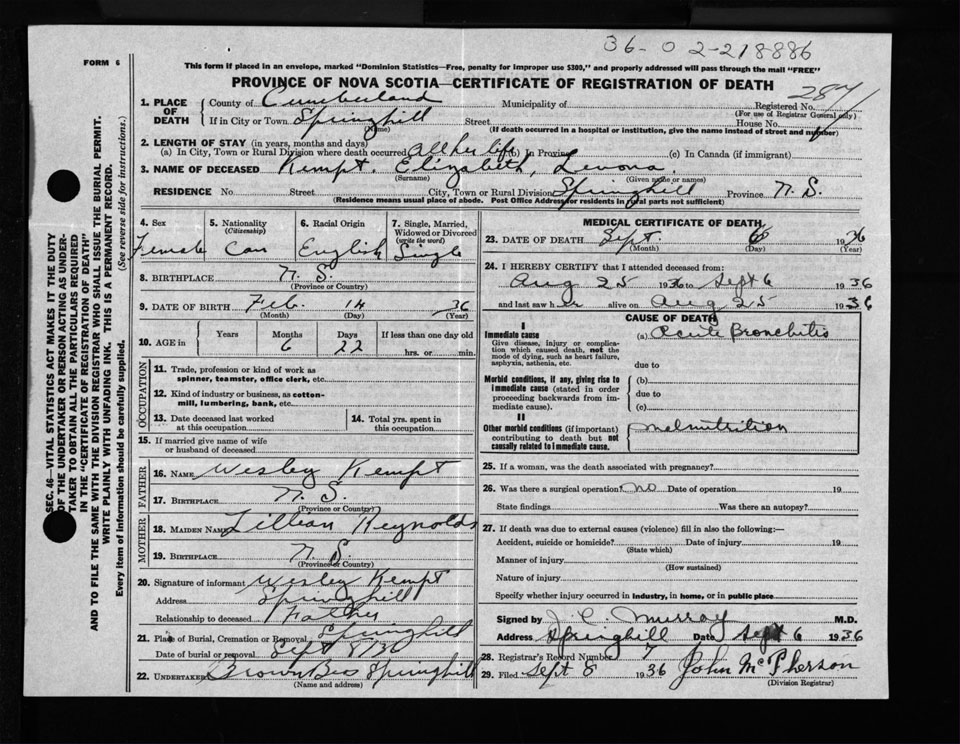 36-02-218886
FORM 6
This form if placed in an envelope, marked "Dominion Statistics—Free, penalty for improper use $300," and properly addressed will pass through the mail "FREE"
PROVINCE OF NOVA SCOTIA—CERTIFICATE OF REGISTRATION OF DEATH
1. PLACE OF DEATH
County of Cumberland Municipality of Registered No.
(For use of Registrar General only)
If in City or Town Springhill Street House No.
(Name) (If death occurred in a hospital or institution, give the name instead of street and number)
2. LENGTH OF STAY (in years, months and days)
(a) In City, Town or Rural Division where death occurred All her life (b) In Province (c) In Canada (if immigrant)
3. NAME OF DECEASED Kempt. Elizabeth, Levona.
(Surname) (Given name or names)
RESIDENCE No. Street City, Town or Rural Division Springhill Province N. S.
(Residence means usual place of abode. Post Office Address for residents in rural parts not sufficient)
4. Sex Female
5. Nationality (Citizenship) Can
6. Racial Origin English
7. Single, Married, Widowed or Divorced (write the word) Single
8. BIRTHPLACE N. S.
(Province or Country)
9. DATE OF BIRTH Feb. 14 36
(Month) (Day) (Year)
10. AGE in Years Months 6 Days 22 If less than one day old
hrs. or min.
OCCUPATION
11. Trade, profession or kind of work as
spinner, teamster, office clerk, etc.
12. Kind of industry or business, as cotton-
mill, lumbering, bank, etc.
13. Date deceased last worked
at this occupation
14. Total yrs. spent in
this occupation
15. If married give name of wife
or husband of deceased
FATHER
16. NAME Wesley Kempt
17. BIRTHPLACE N. S.
(Province or Country)
MOTHER
18. MAIDEN NAME Lillian Reynolds
19. BIRTHPLACE N. S.
(Province or Country)
20. Signature of informant Wesley Kempt
Address Springhill
Relationship to deceased Father
21. Place of Burial, Cremation or Removal Springhill
Date of burial or removal Sept 8
22. UNDERTAKER Brown Bro Springhill
(Name and address)
MEDICAL CERTIFICATE OF DEATH
23. DATE OF DEATH Sept. 6 1936
(Month) (Day) (Year)
24. I HEREBY CERTIFY that I attended deceased from:
Aug 25 1936 to Sept 6 1936
and last saw her alive on Aug 25 1936
CAUSE OF DEATH
I
Immediate cause (a) Acute Bronchitis
Give disease, injury or complica-
tion which caused death, not the
mode of dying, such as heart failure,
asphyxia, asthenia, etc. due to
Morbid conditions, if any, giving rise to (b)
immediate cause (stated in order due to
proceeding backwards from im-
mediate cause). (c)
II
Other morbid conditions (if important) Malnutrition
contributing to death but not
causally related to immediate cause.
25. If a woman, was the death associated with pregnancy?
26. Was there a surgical operation? no Date of operation 19
State findings Was there an autopsy?
27. If death was due to external causes (violence) fill in also the following:—
Accident, suicide or homicide? Date of injury 19
(State which)
Manner of injury
(How sustained)
Nature of injury
Specify whether injury occurred in industry, in home, or in public place
Signed by J. C. Murray M.D.
Address Springhill Date Sept 6 1936
28. Registrar's Record Number 7
29. Filed Sept 8 1936 John McPherson
(Division Registrar)
SEC. 46—VITAL STATISTICS ACT MAKES IT THE DUTY
OF THE UNDERTAKER OR PERSON ACTING AS UNDER-
TAKER TO OBTAIN ALL THE PARTICULARS REQUIRED
IN THE "CERTIFICATE OF REGISTRATION OF DEATH"
AND TO FILE THE SAME WITH THE DIVISION REGISTRAR WHO SHALL ISSUE THE BURIAL PERMIT.
WRITE PLAINLY WITH UNFADING INK. THIS IS A PERMANENT RECORD.
Every item of information should be carefully supplied. (See reverse side for instructions.)